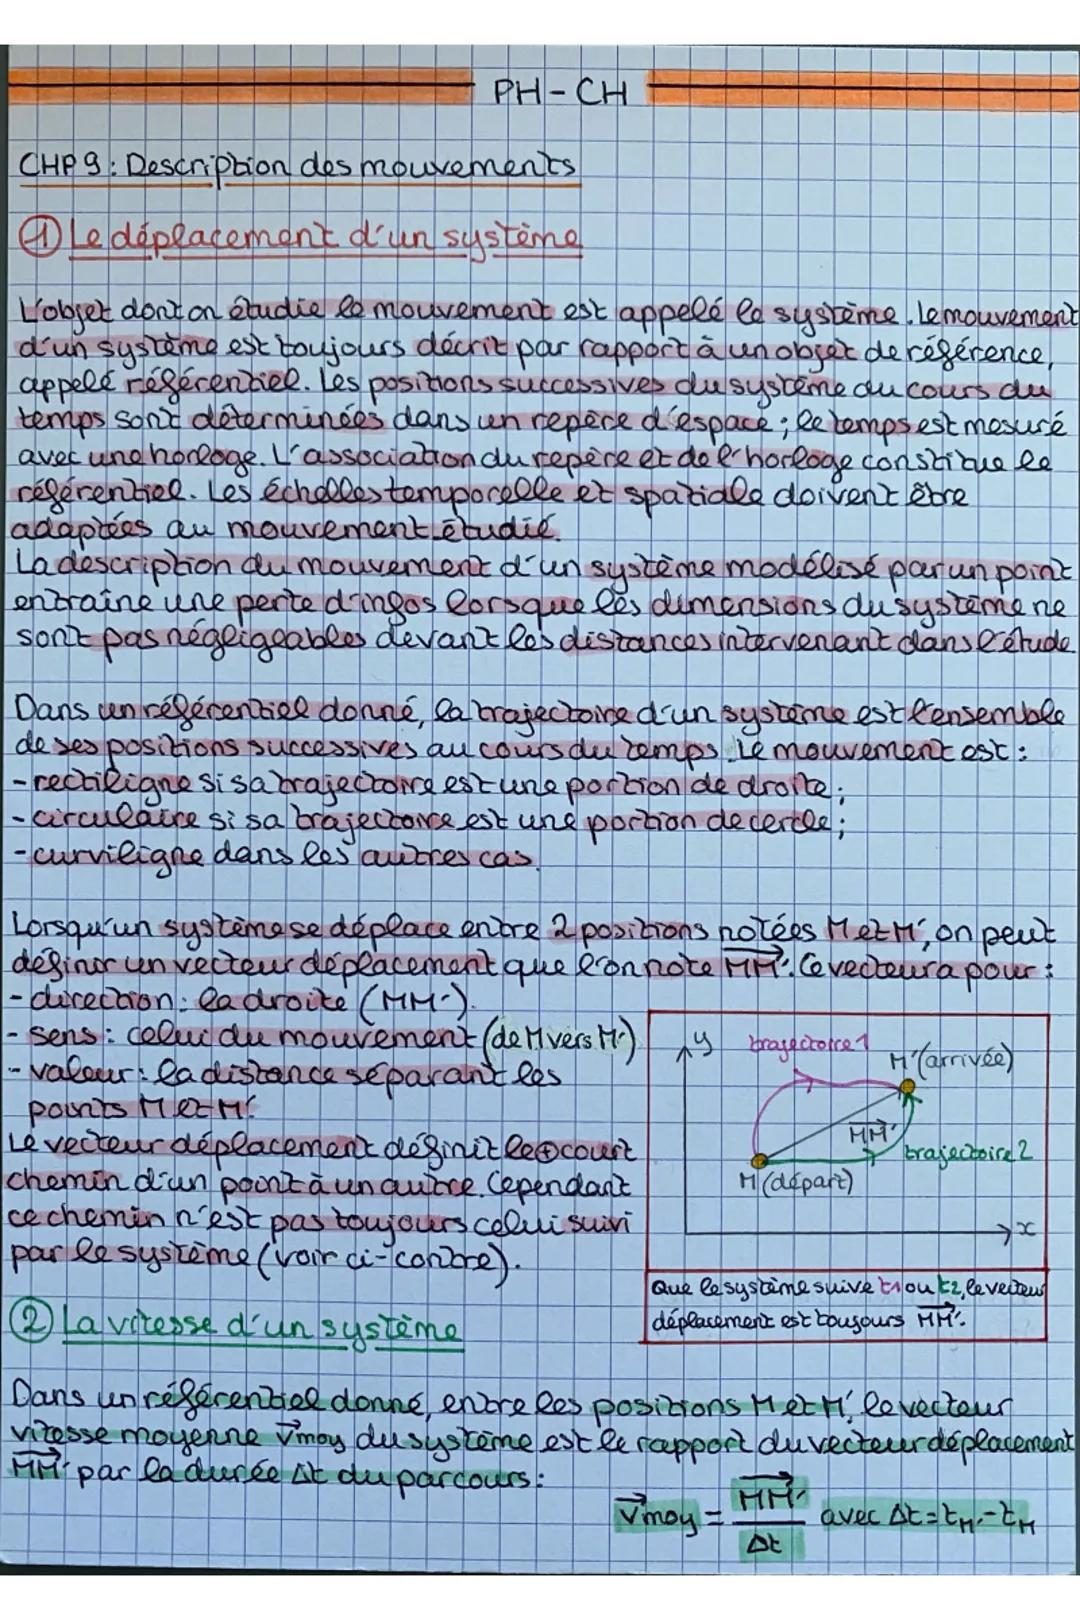 PH-CH
CHP 9 : Description des mouvements
① Le déplacement d'un système
L'objet dont on étudie le mouvement est appelé le système. Le mouvement
d'un système est toujours décrit par rapport à un objet de référence,
appelé référentiel. Les positions successives du système au cours du
temps sont déterminées dans un repère d'espace ; le temps est mesuré
avec une horloge. L'association du repère et de l'horloge constitue le
référentiel. Les échelles temporelle et spatiale doivent être
adaptées au mouvement étudié.
La description du mouvement d'un système modélisé par un point
entraîne une perte d'infos lorsque les dimensions du système ne
sont pas négligeables devant les distances intervenant dans l'étude.
Dans un référentiel donné, la trajectoire d'un système est l'ensemble
de ses positions successives au cours du temps. Le mouvement est :
- rectiligne si sa trajectoire est une portion de droite ;
- circulaire si sa trajectoire est une portion de cercle ;
- curviligne dans les autres cas.
Lorsqu'un système se déplace entre 2 positions notées M et M', on peut
définir un vecteur déplacement que l'on note MM'. Ce vecteur a pour :
- direction : la droite (MM').
- sens : celui du mouvement (de M vers M')
- valeur : la distance séparant les
points M et M'.
Le vecteur déplacement définit le ⊕ court
chemin d'un point à un autre. Cependant
ce chemin n'est pas toujours celui suivi
par le système (voir ci-contre).
y
trajectoire 1
M' (arrivée)
MM'
trajectoire 2
M (départ)
x
Que le système suive t1 ou t2, le vecteur
déplacement est toujours MM'.
② La vitesse d'un système
Dans un référentiel donné, entre les positions M et M', le vecteur
vitesse moyenne Vmoy du système est le rapport du vecteur déplacement
MM' par la durée Δt du parcours :
Vmoy = MM' / Δt avec Δt = tM' - tM